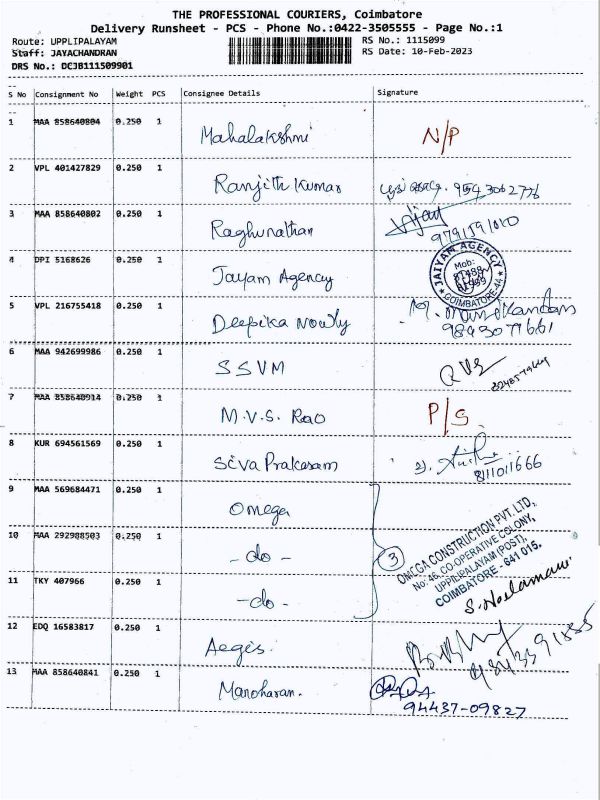 THE PROFESSIONAL COURIERS, Coimbatore
Delivery Runsheet - PCS - Phone No.:0422-3505555 - Page No.:1
Route: UPPLIPALAYAM RS No.: 1115099
Staff: JAYACHANDRAN RS Date: 10-Feb-2023
DRS No.: DCJB111509901
S No Consignment No Weight PCS Consignee Details Signature
1 MAA 858640804 0.250 1 Mahalakshmi N/P
2 VPL 401427829 0.250 1 Ranjith Kumar
3 MAA 858640802 0.250 1 Raghunathan Vijay
4 DPI 5168626 0.250 1 Jayam Agency JAIYAM AGENCY Mob: COIMBATORE-44
5 VPL 216755418 0.250 1 Deepika Nowly
9843071661
6 MAA 942699986 0.250 1 SSVM
7 MAA 858640914 0.250 1 M.V.S. Rao P/S.
8 KUR 694561569 0.250 1 Siva Prakasam
8111011666
9 MAA 569684471 0.250 1 Omega
10 MAA 292988503 0.250 1 - do -
11 TKY 407966 0.250 1 - do -
3
OMEGA CONSTRUCTION PVT. LTD,
No: 46, CO-OPERATIVE COLONY,
UPPILIPALAYAM (POST),
COIMBATORE - 641 015.
12 EDQ 16583817 0.250 1 Aegis.
13 MAA 858640841 0.250 1 Manoharan.
94437-09827